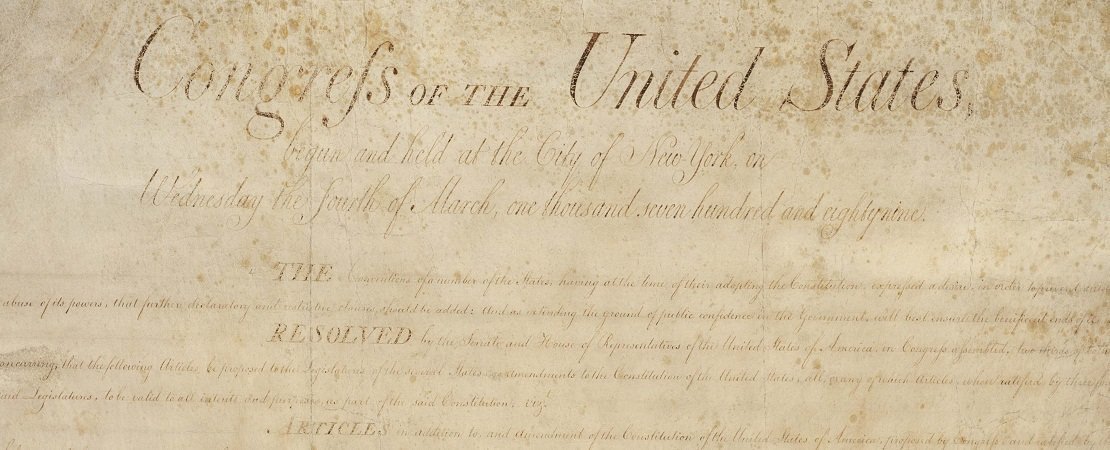 Congreſs OF THE United States,
begun and held at the City of New York, on
Wednesday the Fourth of March, one thousand seven hundred and eighty nine.
THE Conventions of a number of the States, having at the time of their adopting the Constitution, expreſsed a desire, in order to prevent
abuse of its powers, that further declaratory and restrictive clauses should be added: And as extending the ground of public confidence in the Government, will best ensure the beneficent ends of
RESOLVED by the Senate and House of Representatives of the United States of America, in Congreſs aſsembled, two thirds of
concurring, that the following Articles be proposed to the Legislatures of the several States, as amendments to the Constitution of the United States, all, or any of which Articles, when ratified by three
said Legislatures, to be valid to all intents and purposes, as part of the said Constitution; vizt.
ARTICLES in addition to, and Amendment of the Constitution of the United States of America, proposed by Congreſs and ratified by